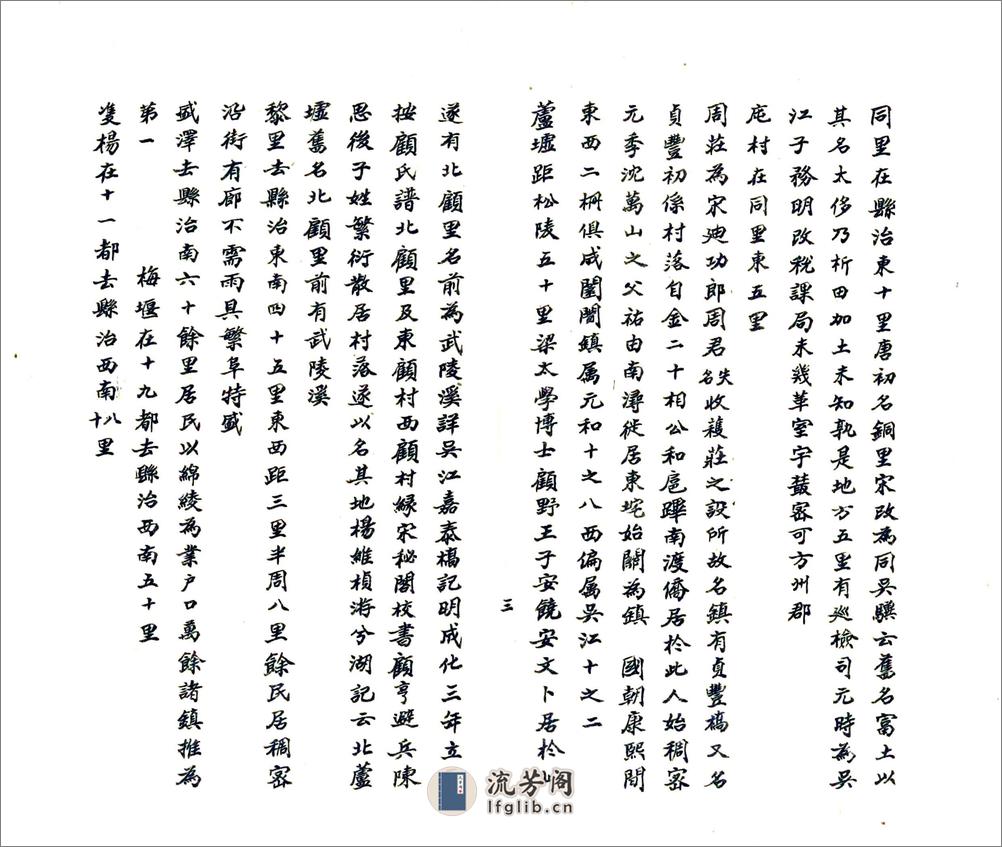 同里在縣治東十里唐初名銅里宋改為同吳驥云舊名富土以
其名太侈乃析田加土未知孰是地方五里有巡檢司元時為吳
江子務明改稅課局未幾革室宇叢密可方州郡
庉村在同里東五里
周莊為宋廸功郎周君失名收穫莊之設所故名鎮有貞豐橋又名
貞豐初係村落自金二十相公和扈蹕南渡僑居於此人始稠密
元季沈萬山之父祐由南潯徙居東垞始闢為鎮 國朝康熙間
東西二柵俱成闤闠鎮属元和十之八西偏属吳江十之二
蘆墟距松陵五十里梁太學博士顧野王子安饒安文卜居於此
三
遂有北顧里名前為武陵溪詳吳江嘉泰橋記明成化三年立
按顧氏譜北顧里及東顧村西顧村緣宋秘閣校書顧亨避兵陳
思後子姓繁衍散居村落遂以名其地楊維楨游分湖記云北蘆
墟舊名北顧里前有武陵溪
黎里去縣治東南四十五里東西距三里半周八里餘民居稠密
沿街有廊不需雨具繁阜特盛
盛澤去縣治南六十餘里居民以綿綾為業戶口萬餘諸鎮推為
第一 梅堰在十九都去縣治西南五十里
雙楊在十一都去縣治西南八十里
流芳阁
lfglib.cn